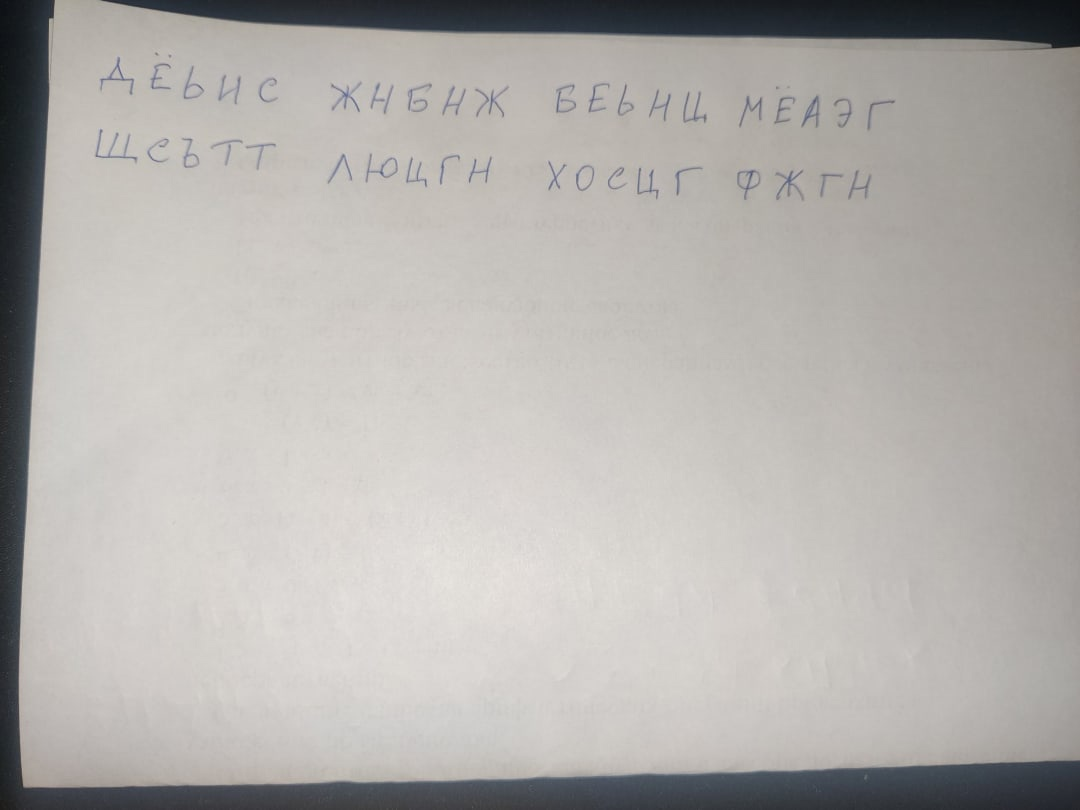 ДЁЬНС ЖНБНЖ БЕЬНЩ МЁАЭГ
ЩСЪТТ ЛЮЦГН ХОСЦГ ФЖГН